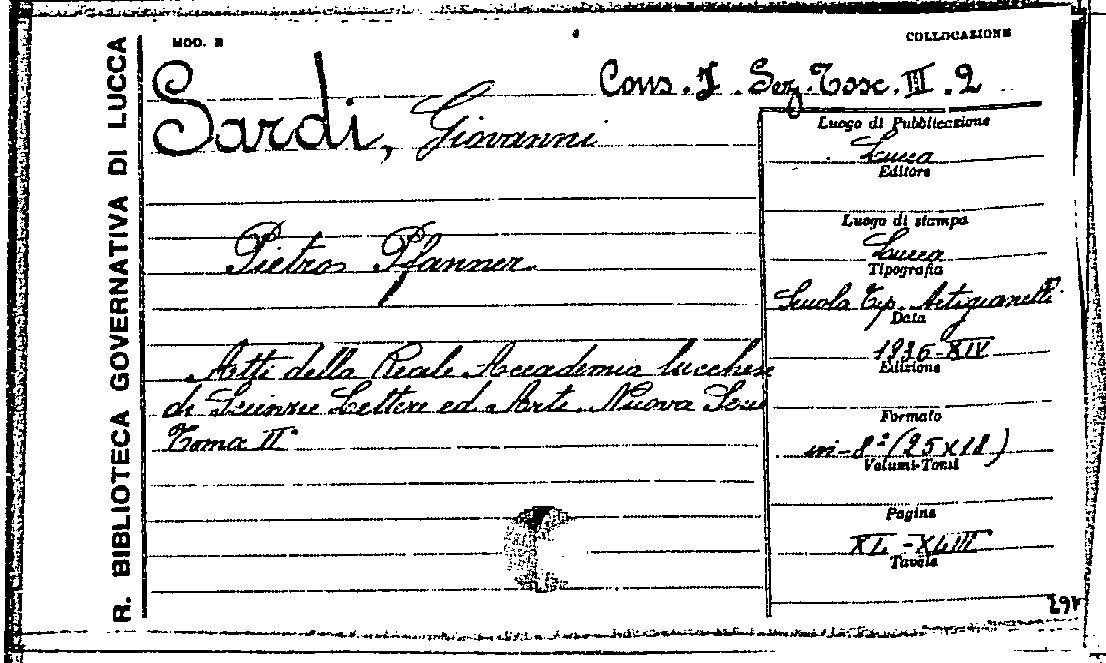 R. BIBLIOTECA GOVERNATIVA DI LUCCA
MOD. B
COLLOCAZIONE
Cons. I. Sez. Tosc. III. 2
Sardi, Giovanni
Pietro Pfanner
Atti della Reale Accademia lucchese
di Scienze Lettere ed Arti. Nuova Serie
Tomo II
Luogo di Pubblicazione
Lucca
Editore
Luogo di stampa
Lucca
Tipografia
Scuola Tip. Artigianelli
Data
1936-XIV
Edizione
Formato
in-8° (25x18)
Volumi-Tomi
Pagine
XL-XLIII
Tavole